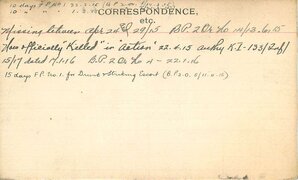 10 days F.P.
CORRESPONDENCE,
etc.
Missing between Apl 22 & 29/15 B.P. 2 Os No 14/13.6.15
Now officially "Killed in action" 22.4.15 authy K.I-133/
15/17 dated 7.1.16 B.P. 2 Os No 4 - 22.1.16
15 days F.P. No. 1. for Drunk & Striking Escort (B.P. 2.O. 5/11.0.15)